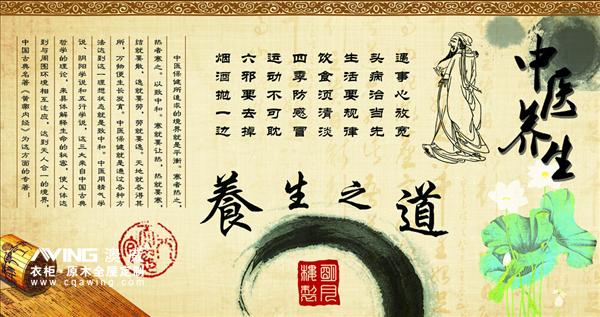 中医养生
遇事心放宽
头病治当先
生活要规律
饮食须清淡
四季防感冒
运动不可耽
六邪要去掉
烟酒抛一边
養生之道
中医保健所追求的境界就是平衡。寒者热之，
热者寒之。以致中和。寒就要让热，热就要寒，
结就要散，逸就要劳，劳就要逸。天地就各得其
所，万物便生长发育。中医保健就是通过各种方
法达到这一理想状态就是致中和。中医用精气学
说、阴阳学说和五行学说，这三大来自中国古典
哲学的理论，来具体解释生命的秘密，使人体达
到与周围环境相互适应，达到天人合一的境界，
中国古典名著《黄帝内经》为这方面的专著。
衣柜·原木全屋定制
www.cqawing.com